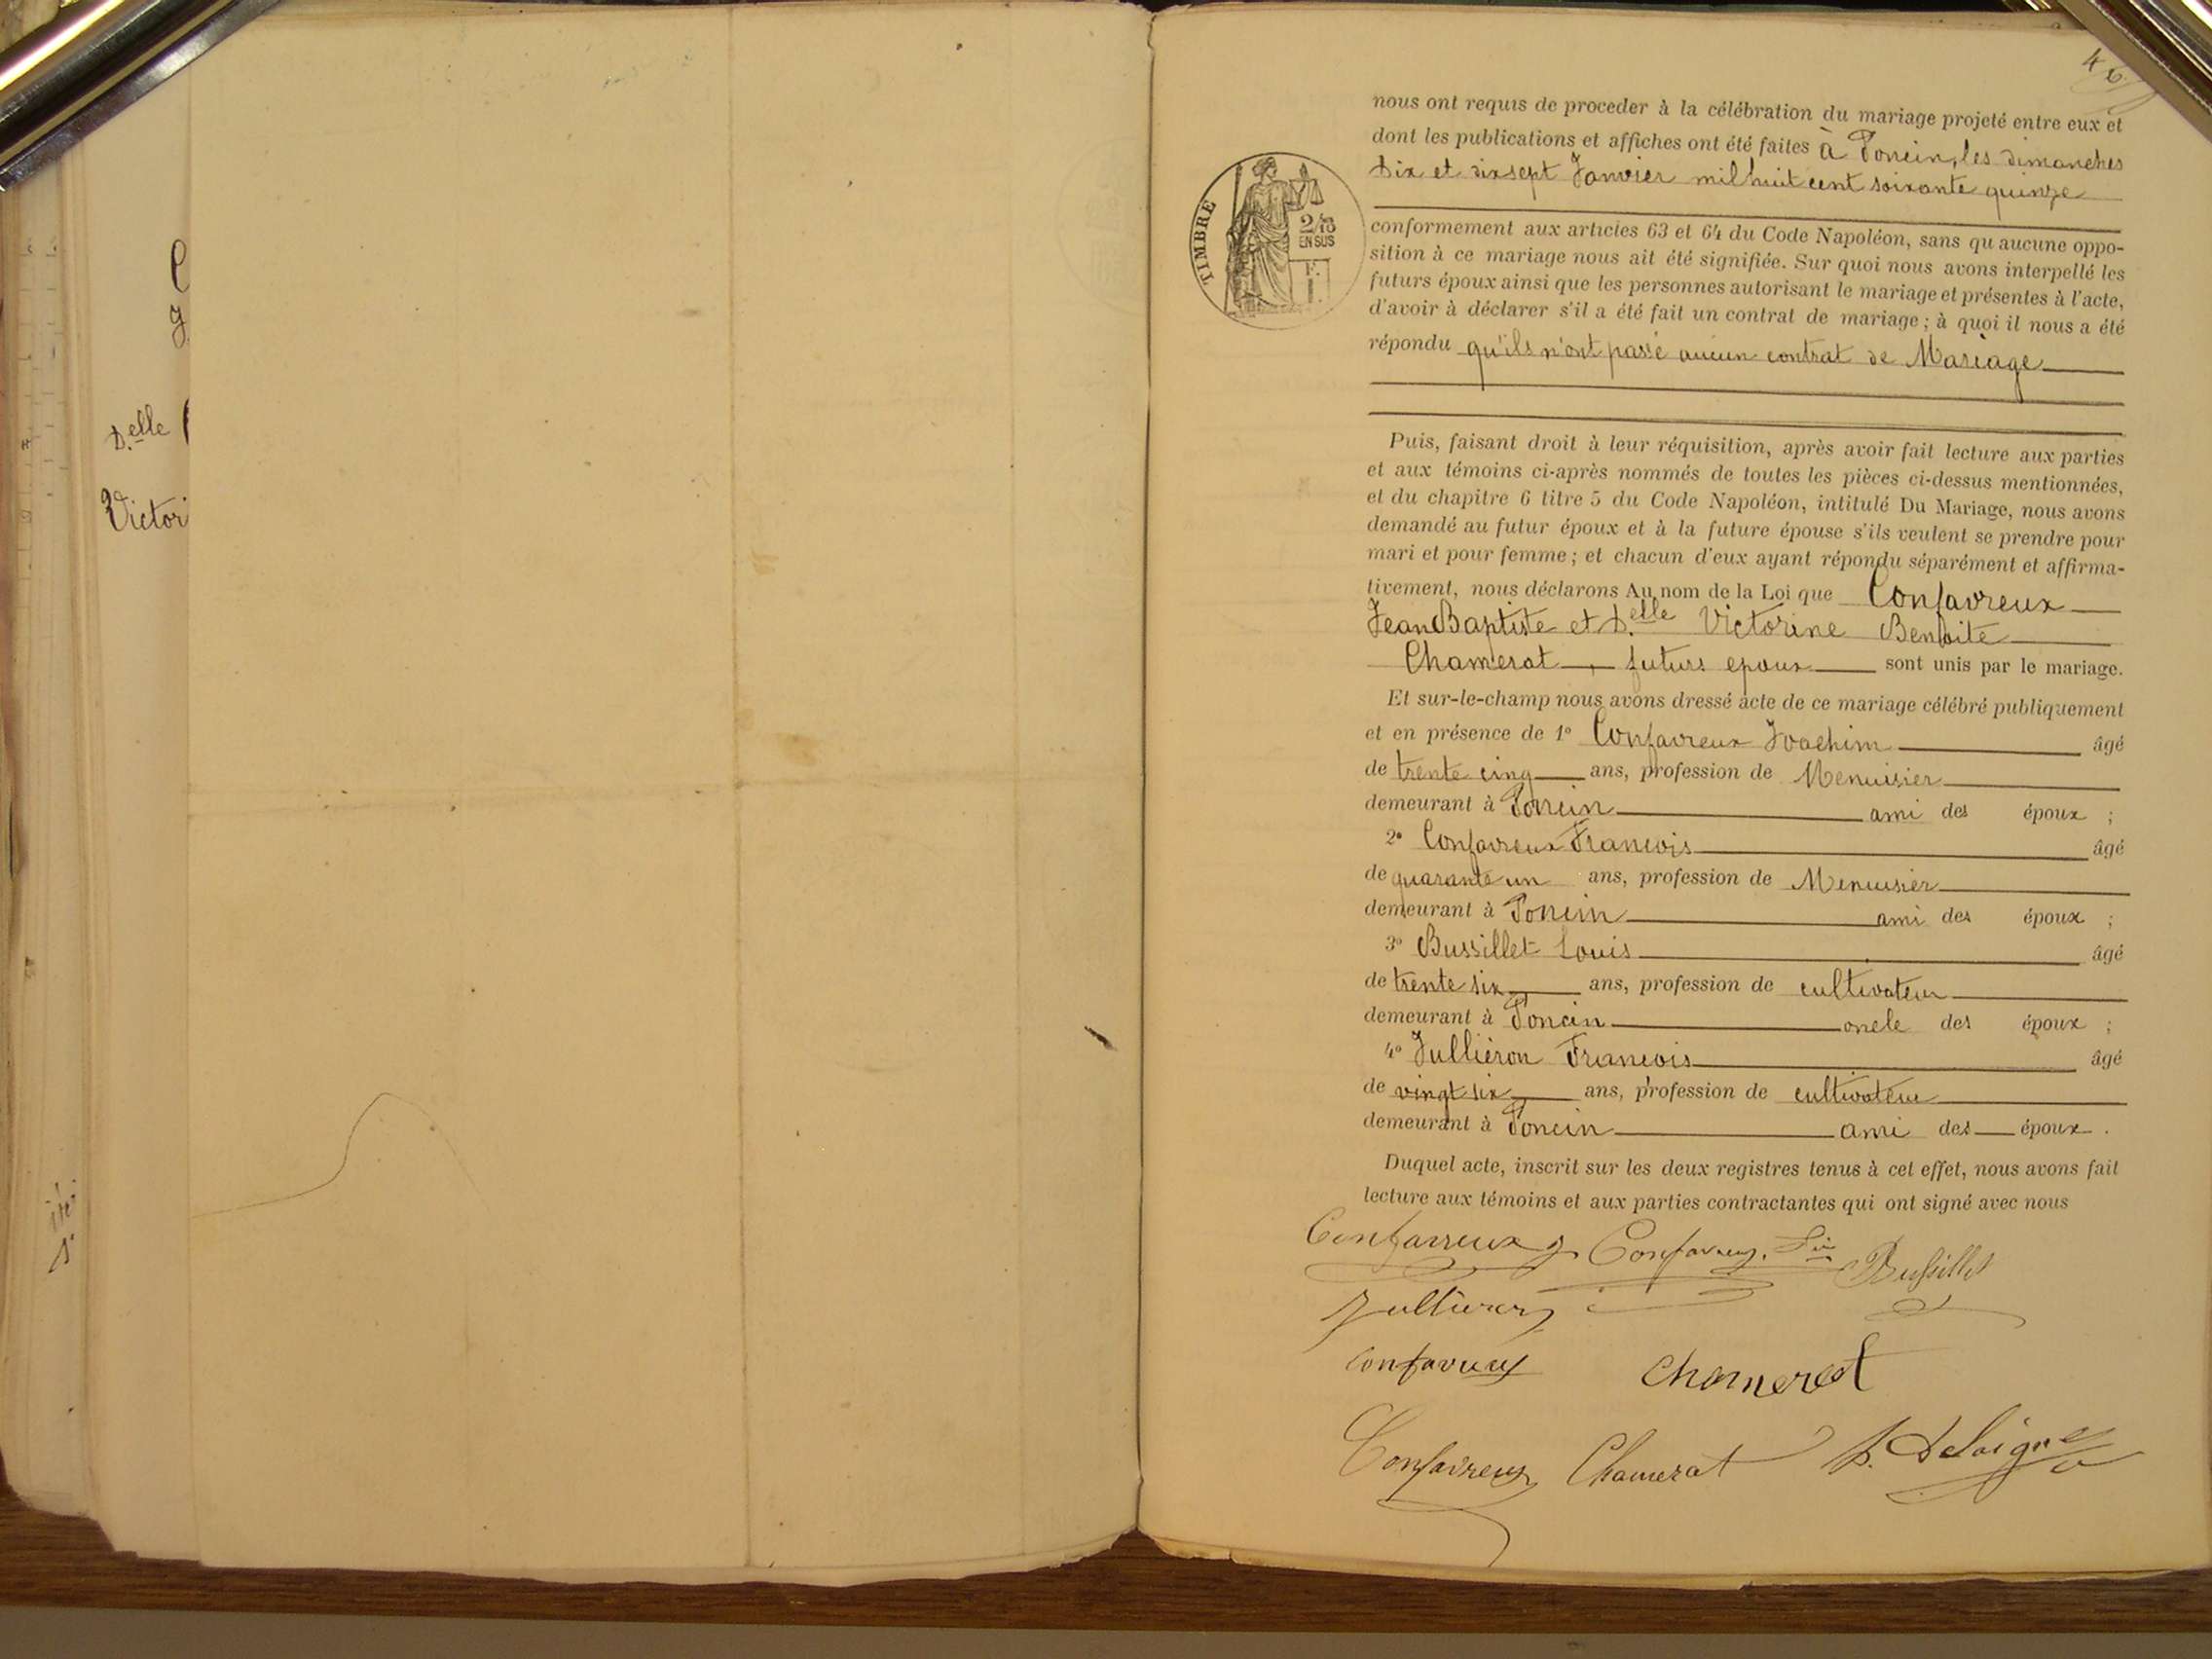 C
J
D.elle
Victor
TIMBRE
2/10
EN SUS
F.
1
nous ont requis de proceder à la célébration du mariage projeté entre eux et
dont les publications et affiches ont été faites à Poncin, les dimanches
dix et dix sept Janvier mil huit cent soixante quinze
conformement aux articles 63 et 64 du Code Napoléon, sans qu'aucune oppo-
sition à ce mariage nous ait été signifiée. Sur quoi nous avons interpellé les
futurs époux ainsi que les personnes autorisant le mariage et présentes à l'acte,
d'avoir à déclarer s'il a été fait un contrat de mariage ; à quoi il nous a été
répondu qu'ils n'ont passé aucun contrat de Mariage
Puis, faisant droit à leur réquisition, après avoir fait lecture aux parties
et aux témoins ci-après nommés de toutes les pièces ci-dessus mentionnées,
et du chapitre 6 titre 5 du Code Napoléon, intitulé Du Mariage, nous avons
demandé au futur époux et à la future épouse s'ils veulent se prendre pour
mari et pour femme ; et chacun d'eux ayant répondu séparément et affirma-
tivement, nous déclarons Au nom de la Loi que Confavreux
Jean Baptiste et D.elle Victorine Benoite
Chamerat, futurs epoux sont unis par le mariage.
Et sur-le-champ nous avons dressé acte de ce mariage célébré publiquement
et en présence de 1° Confavreux Joachim âgé
de trente cinq ans, profession de Menuisier
demeurant à Poncin ami des époux ;
2° Confavreux Francois âgé
de quarante un ans, profession de Menuisier
demeurant à Poncin ami des époux ;
3° Bussillet Louis âgé
de trente six ans, profession de cultivateur
demeurant à Poncin oncle des époux ;
4° Jullieron Francois âgé
de vingt six ans, profession de cultivateur
demeurant à Poncin ami des époux .
Duquel acte, inscrit sur les deux registres tenus à cet effet, nous avons fait
lecture aux témoins et aux parties contractantes qui ont signé avec nous
Confavreux J Confavreux Bussillet
Jullieron
Confavreux Chamerat
Confavreux Chamerat